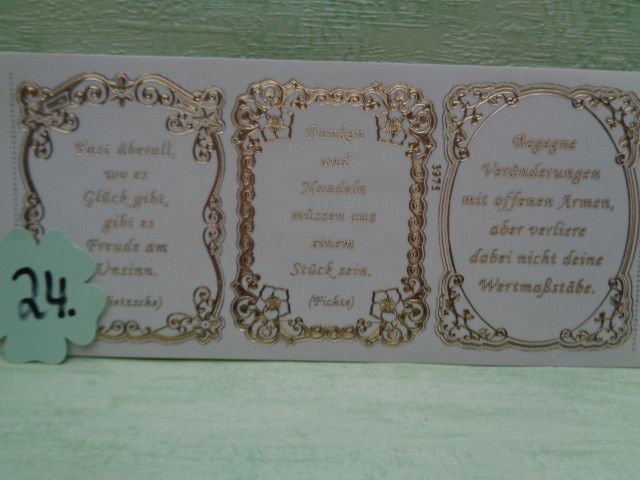 Fast überall,
wo es
Glück gibt,
gibt es
Freude am
Unsinn.
(Nietzsche)
24.
Denken
und
Handeln
müssen aus
einem
Stück sein.
(Fichte)
3375
Begegne
Veränderungen
mit offenen Armen,
aber verliere
dabei nicht deine
Wertmaßstäbe.